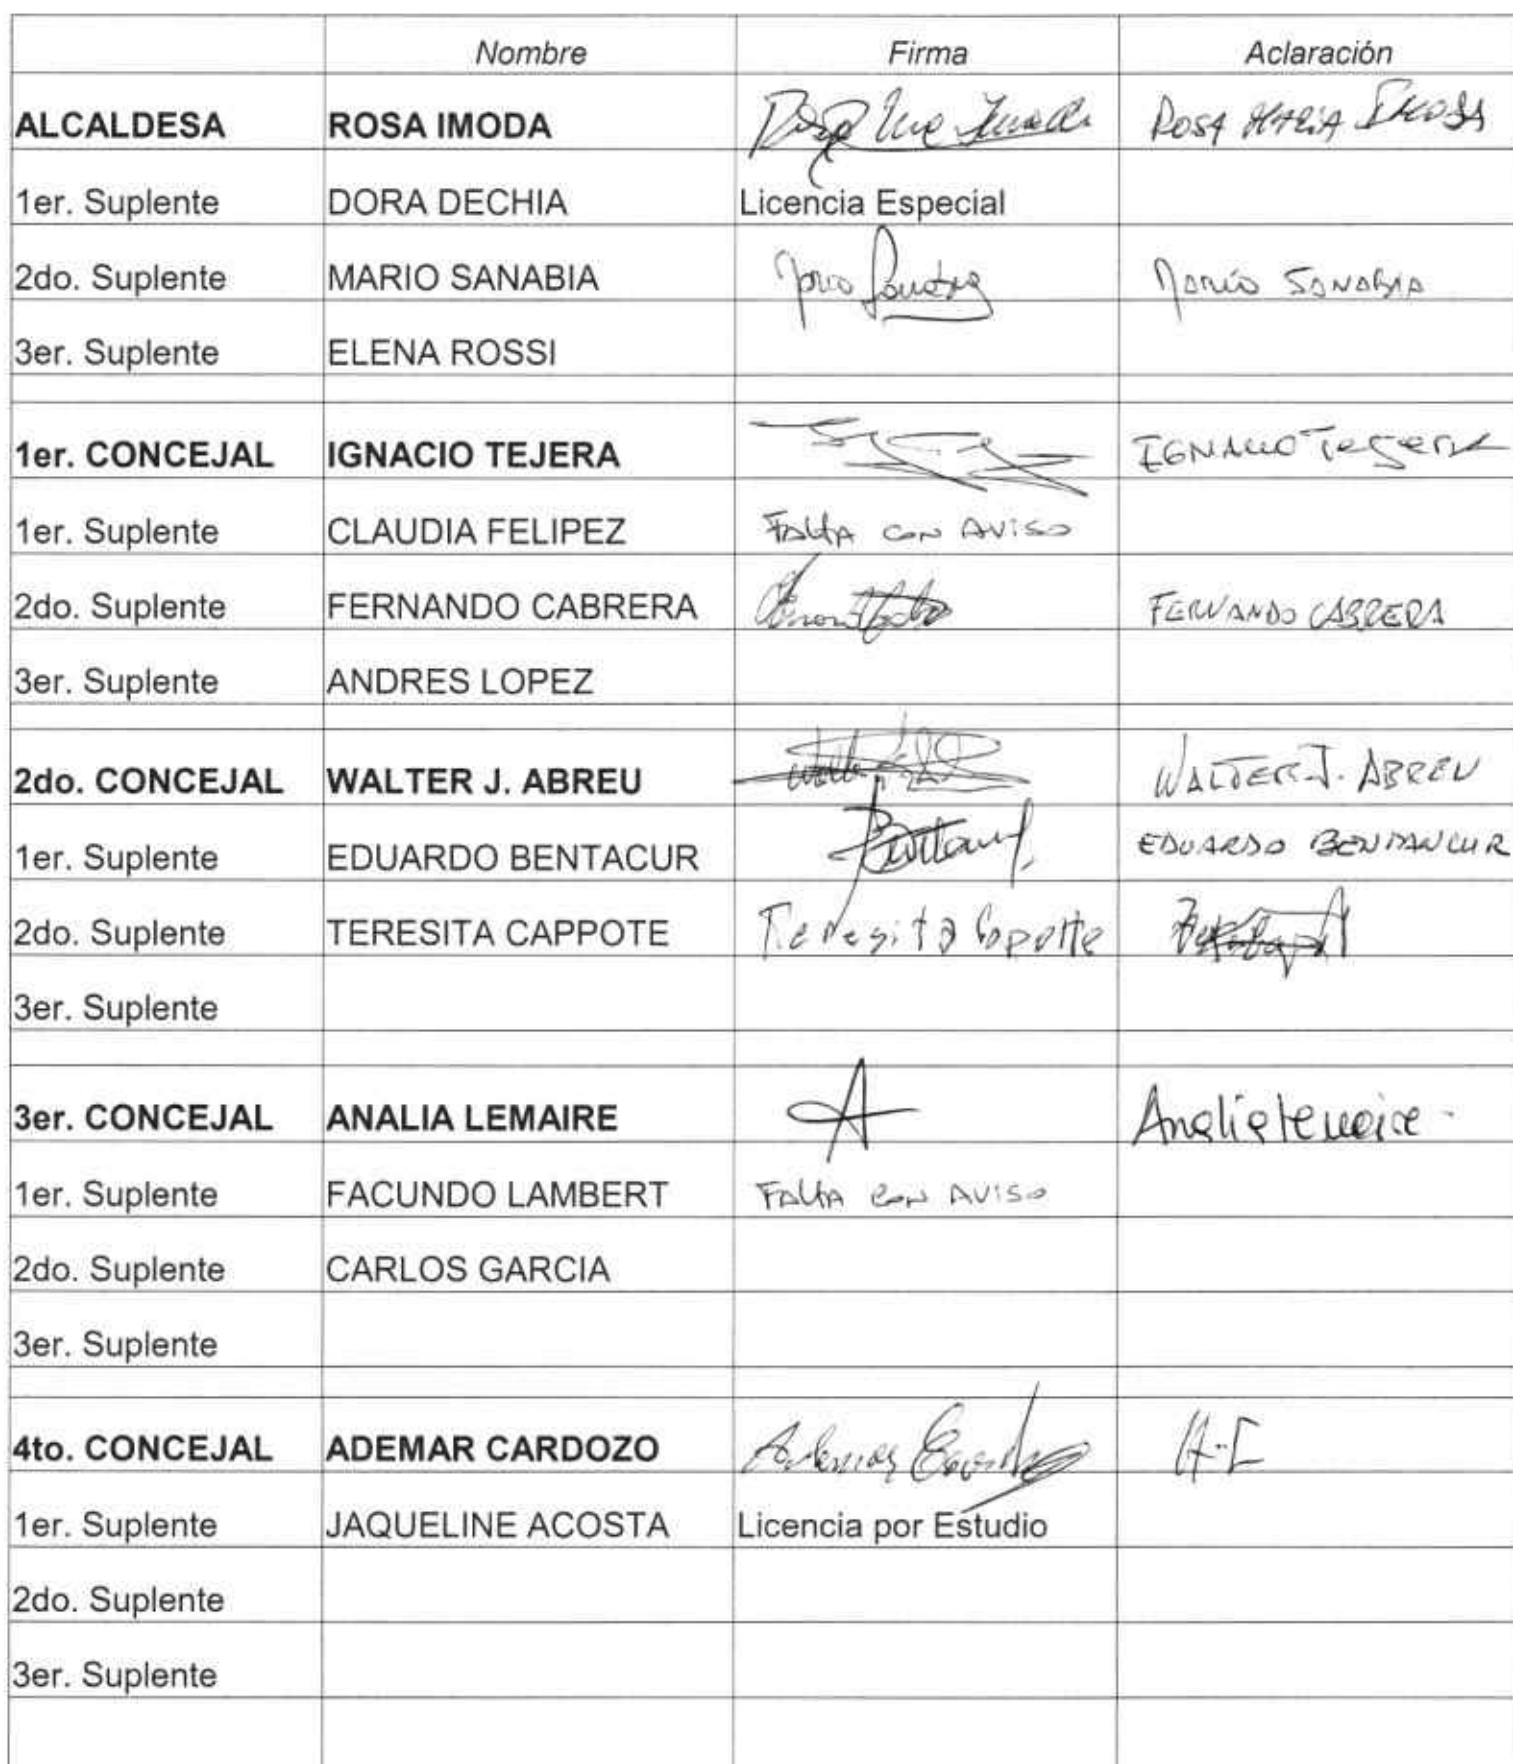 Nombre Firma Aclaración
ALCALDESA ROSA IMODA ROSA MARIA IMODA
1er. Suplente DORA DECHIA Licencia Especial
2do. Suplente MARIO SANABIA Mario SANABIA
3er. Suplente ELENA ROSSI
1er. CONCEJAL IGNACIO TEJERA IGNACIO TEJERA
1er. Suplente CLAUDIA FELIPEZ FALTA CON AVISO
2do. Suplente FERNANDO CABRERA FERNANDO CABRERA
3er. Suplente ANDRES LOPEZ
2do. CONCEJAL WALTER J. ABREU WALTER J. ABREU
1er. Suplente EDUARDO BENTACUR EDUARDO BENTANCUR
2do. Suplente TERESITA CAPPOTE Teresita Coppotte
3er. Suplente
3er. CONCEJAL ANALIA LEMAIRE A Analia Lemaire
1er. Suplente FACUNDO LAMBERT FALTA CON AVISO
2do. Suplente CARLOS GARCIA
3er. Suplente
4to. CONCEJAL ADEMAR CARDOZO Ademar Cardozo
1er. Suplente JAQUELINE ACOSTA Licencia por Estudio
2do. Suplente
3er. Suplente